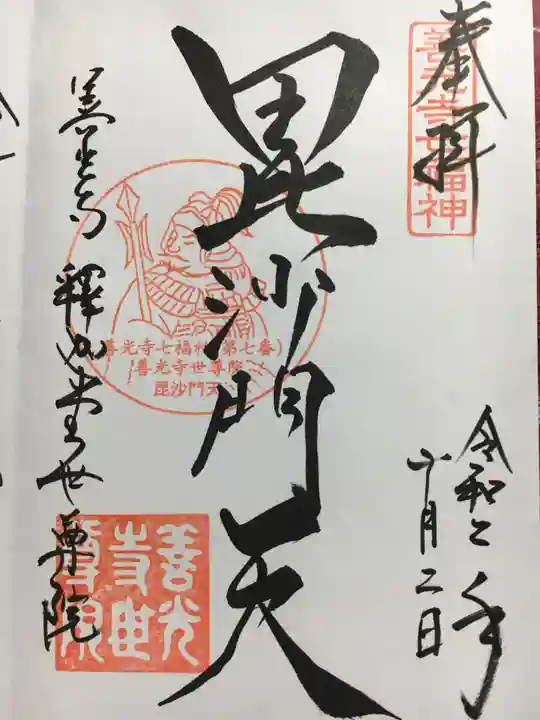 奉拝
善光寺七福神
令和二年
十月二日
毘沙門天
善光寺七福神(第七番)
善光寺世尊院
毘沙門天
善光寺 釋迦堂世尊院
善光
寺世
尊院